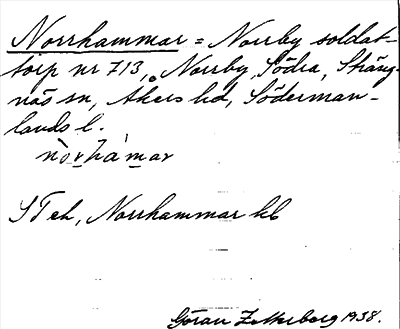 Norrhammar = Norrby soldat-
torp nr 713, Norrby, Södra, Sträng-
näs sn, Åkers hd, Söderman-
lands l.
nòrhàmar
STeh, Norrhammar kb
Göran Zetterberg 1938.